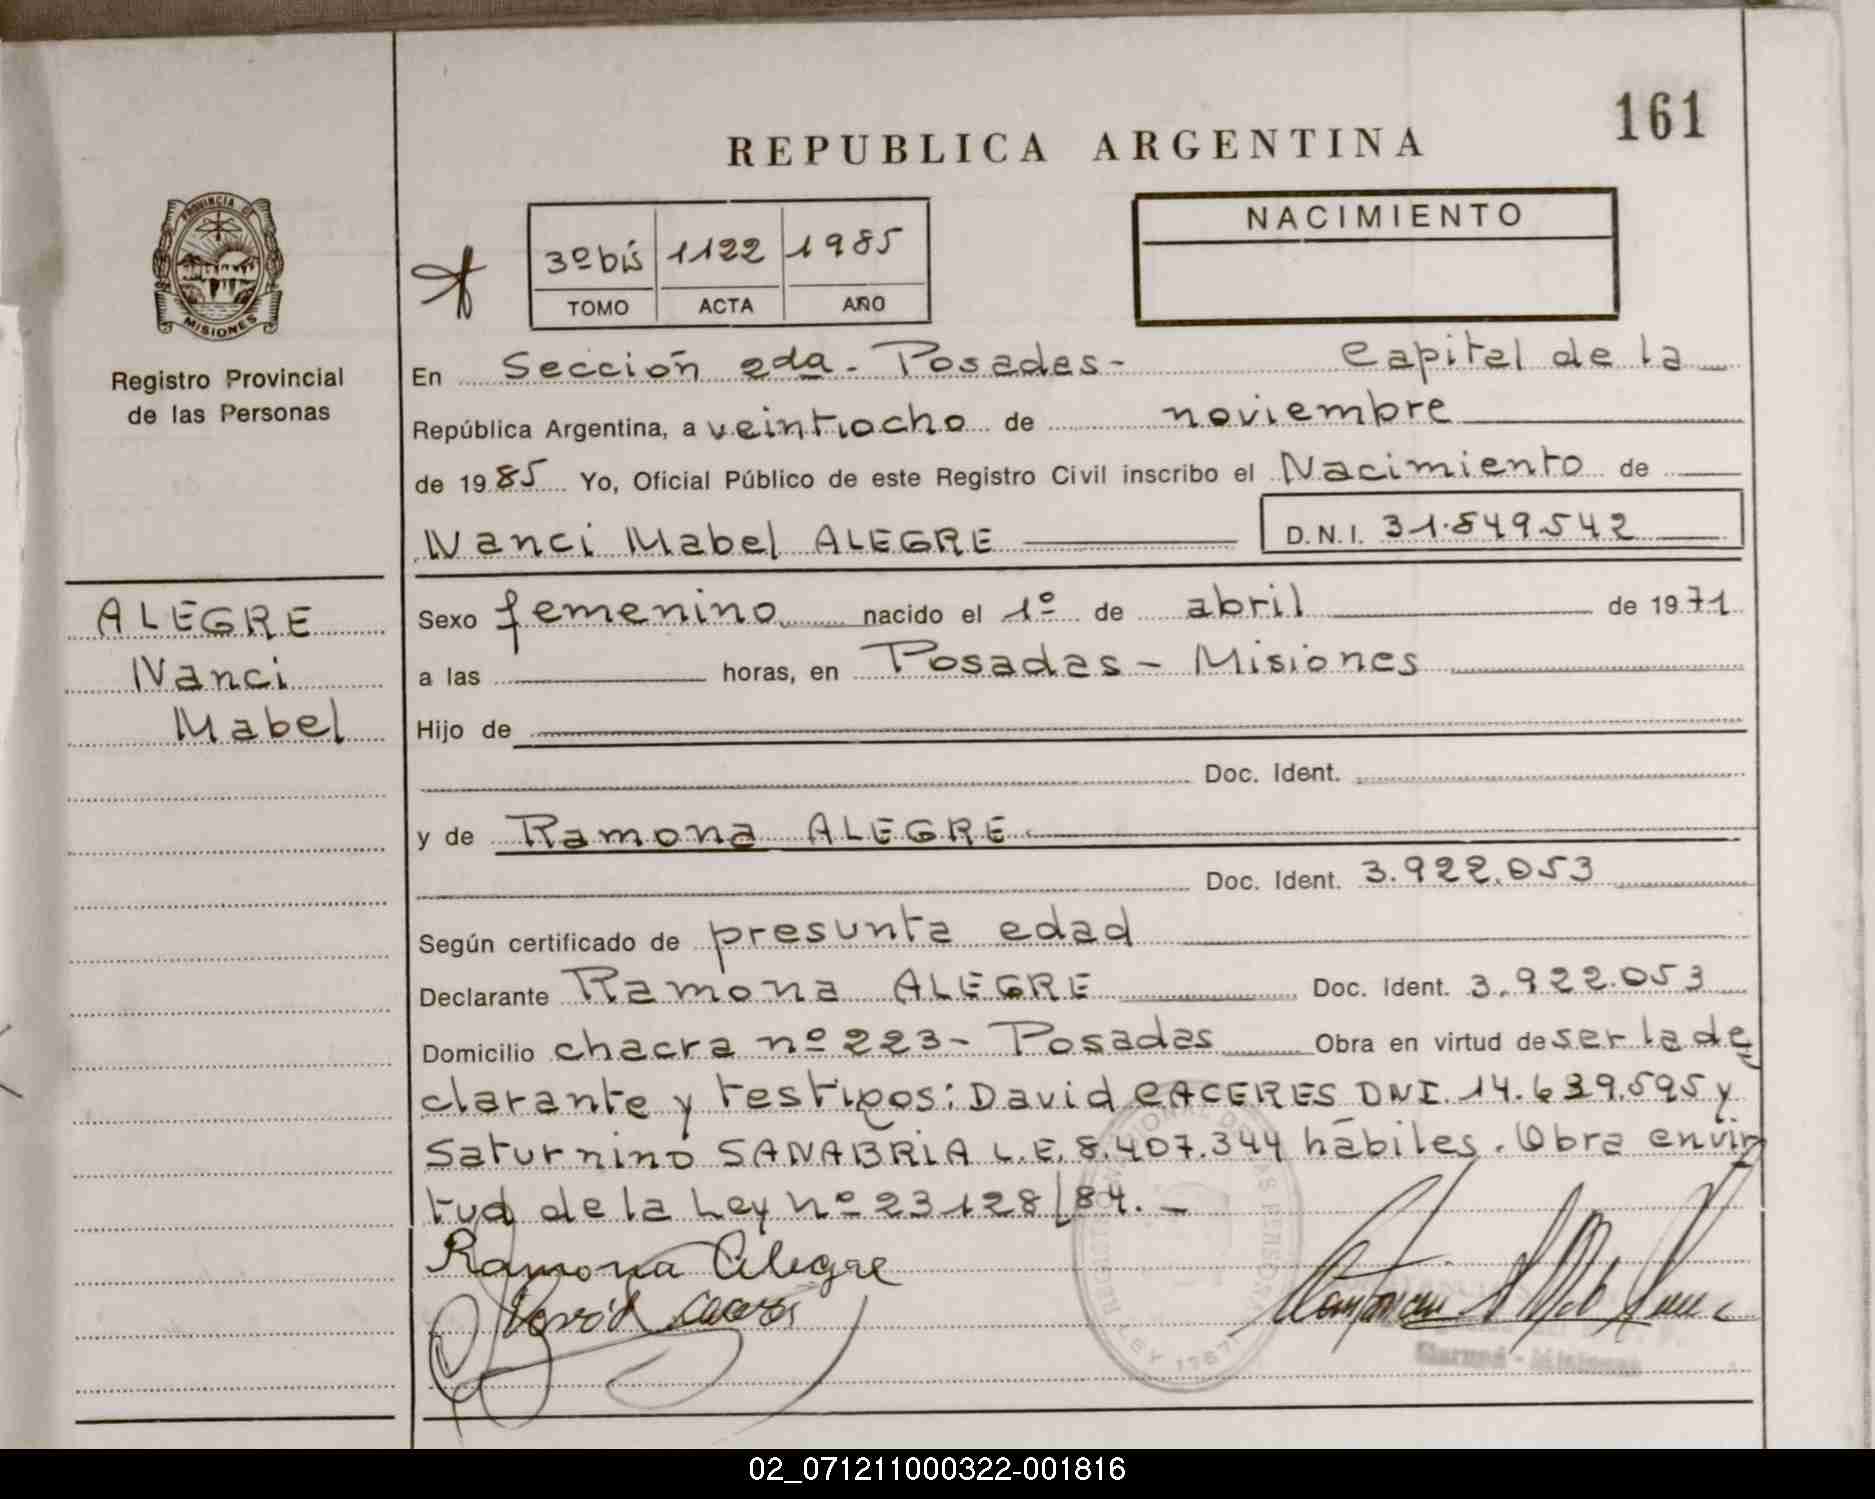 161
REPUBLICA ARGENTINA
PROVINCIA DE
MISIONES
Registro Provincial
de las Personas
3º bis 1122 1985
TOMO ACTA AÑO
NACIMIENTO
En Sección 2da. Posadas - Capital de la
República Argentina, a veintiocho de noviembre
de 1985 Yo, Oficial Público de este Registro Civil inscribo el Nacimiento de
Nanci Mabel ALEGRE D.N.I. 31.849.542
ALEGRE
Nanci
Mabel
Sexo femenino nacido el 1º de abril de 1971
a las horas, en Posadas - Misiones
Hijo de
Doc. Ident.
y de Ramona ALEGRE.
Doc. Ident. 3.922.053
Según certificado de presunta edad
Declarante Ramona ALEGRE Doc. Ident. 3.922.053
Domicilio chacra nº 223 - Posadas Obra en virtud de ser la de
clarante y testigos: David CACERES DNI. 14.639.595 y
Saturnino SANABRIA L.E. 8.407.344 hábiles. Obra en vir
tud de la Ley nº 23128/84. -
Ramona Alegre
David Caceres
02_071211000322-001816